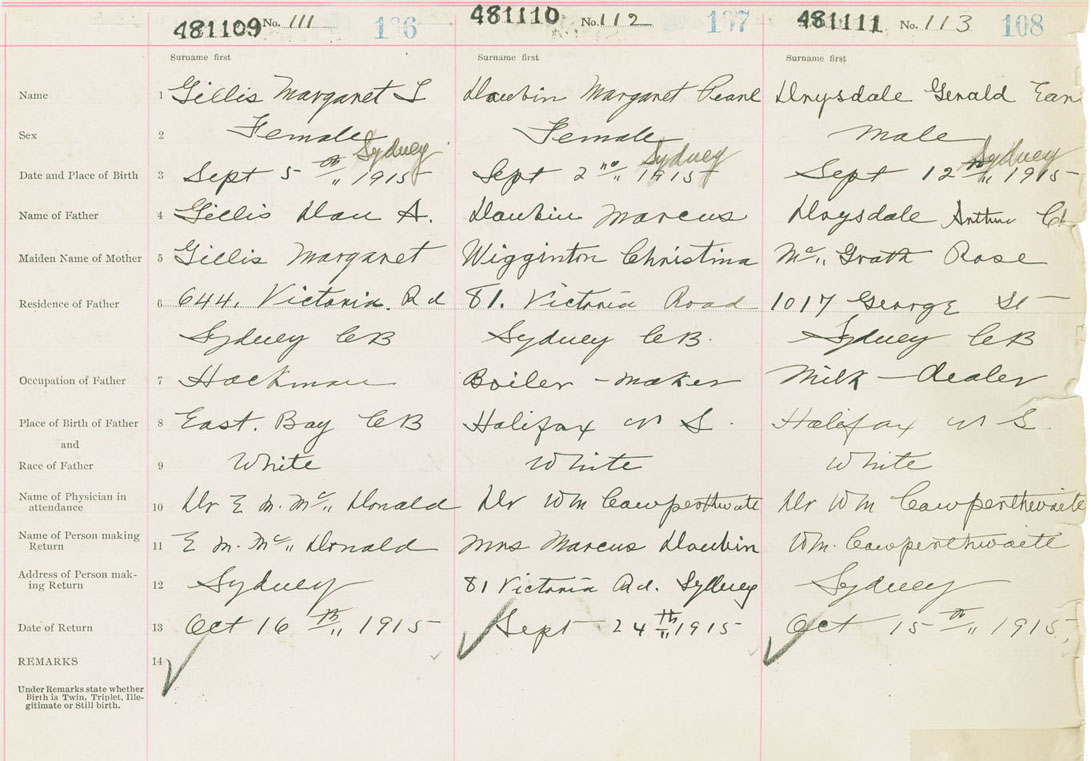 481109 No. 111 106 481110 No. 112 107 481111 No. 113 108
Surname first Surname first Surname first
Name 1 Gillis Margaret Daubin Margaret Pearl Drysdale Gerald Earl
Sex 2 Female Female Male
Sydney Sydney Sydney
Date and Place of Birth 3 Sept 5 th 1915 Sept 2 nd 1915 Sept 12 th 1915
Name of Father 4 Gillis Dan A. Daubin Marcus Drysdale Arthur
Maiden Name of Mother 5 Gillis Margaret Wigginton Christina Mc Grath Rose
Residence of Father 6 644. Victoria. Rd 81. Victoria Road 1017 George St
Sydney CB Sydney CB. Sydney CB
Occupation of Father 7 Hackman Boiler - maker Milk - dealer
Place of Birth of Father 8 East. Bay CB Halifax N S. Halifax N S.
and
Race of Father 9 White White White
Name of Physician in
attendance 10 Dr E M. Mc Donald Dr Wm Cowperthwaite Dr Wm Cowperthwaite
Name of Person making
Return 11 E M. Mc Donald Mrs Marcus Daubin Wm. Cowperthwaite
Address of Person mak-
ing Return 12 Sydney 81 Victoria Rd. Sydney Sydney
Date of Return 13 Oct 16 th 1915 Sept 24 th 1915 Oct 15 th 1915
REMARKS 14
Under Remarks state whether
Birth is Twin, Triplet, Ille-
gitimate or Still birth.